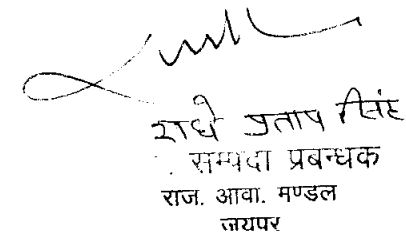 राधे प्रताप सिंह
सम्पदा प्रबन्धक
राज. आवा. मण्डल
जयपुर